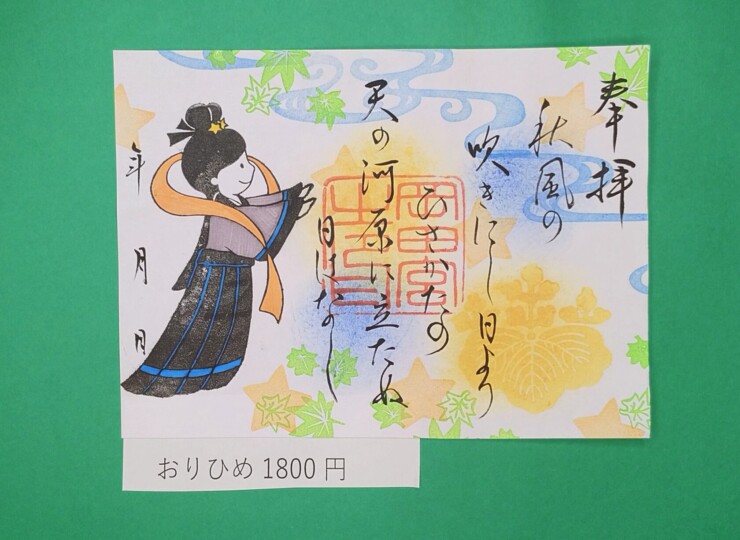 奉拝
秋風の
吹きにし日より
ひさかたの
天の河原に立たぬ
日はなし
年 月 日
おりひめ 1800 円